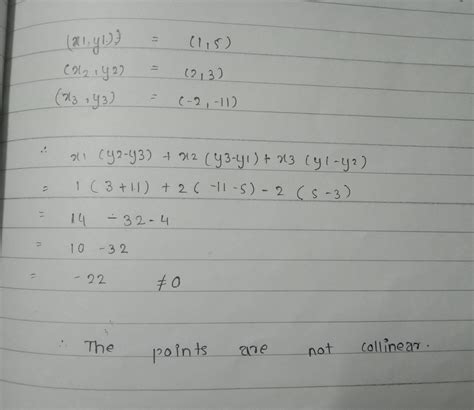 (x1,y1)} = (1,5)
(x2,y2) = (2,3)
(x3,y3) = (-2,-11)
∴ x1 (y2-y3) + x2 (y3-y1) + x3 (y1-y2)
= 1 ( 3 + 11) + 2( -11 -5) - 2 ( 5 -3)
= 14 - 32 - 4
= 10 - 32
= -22 ≠ 0
∴ The points are not collinear.